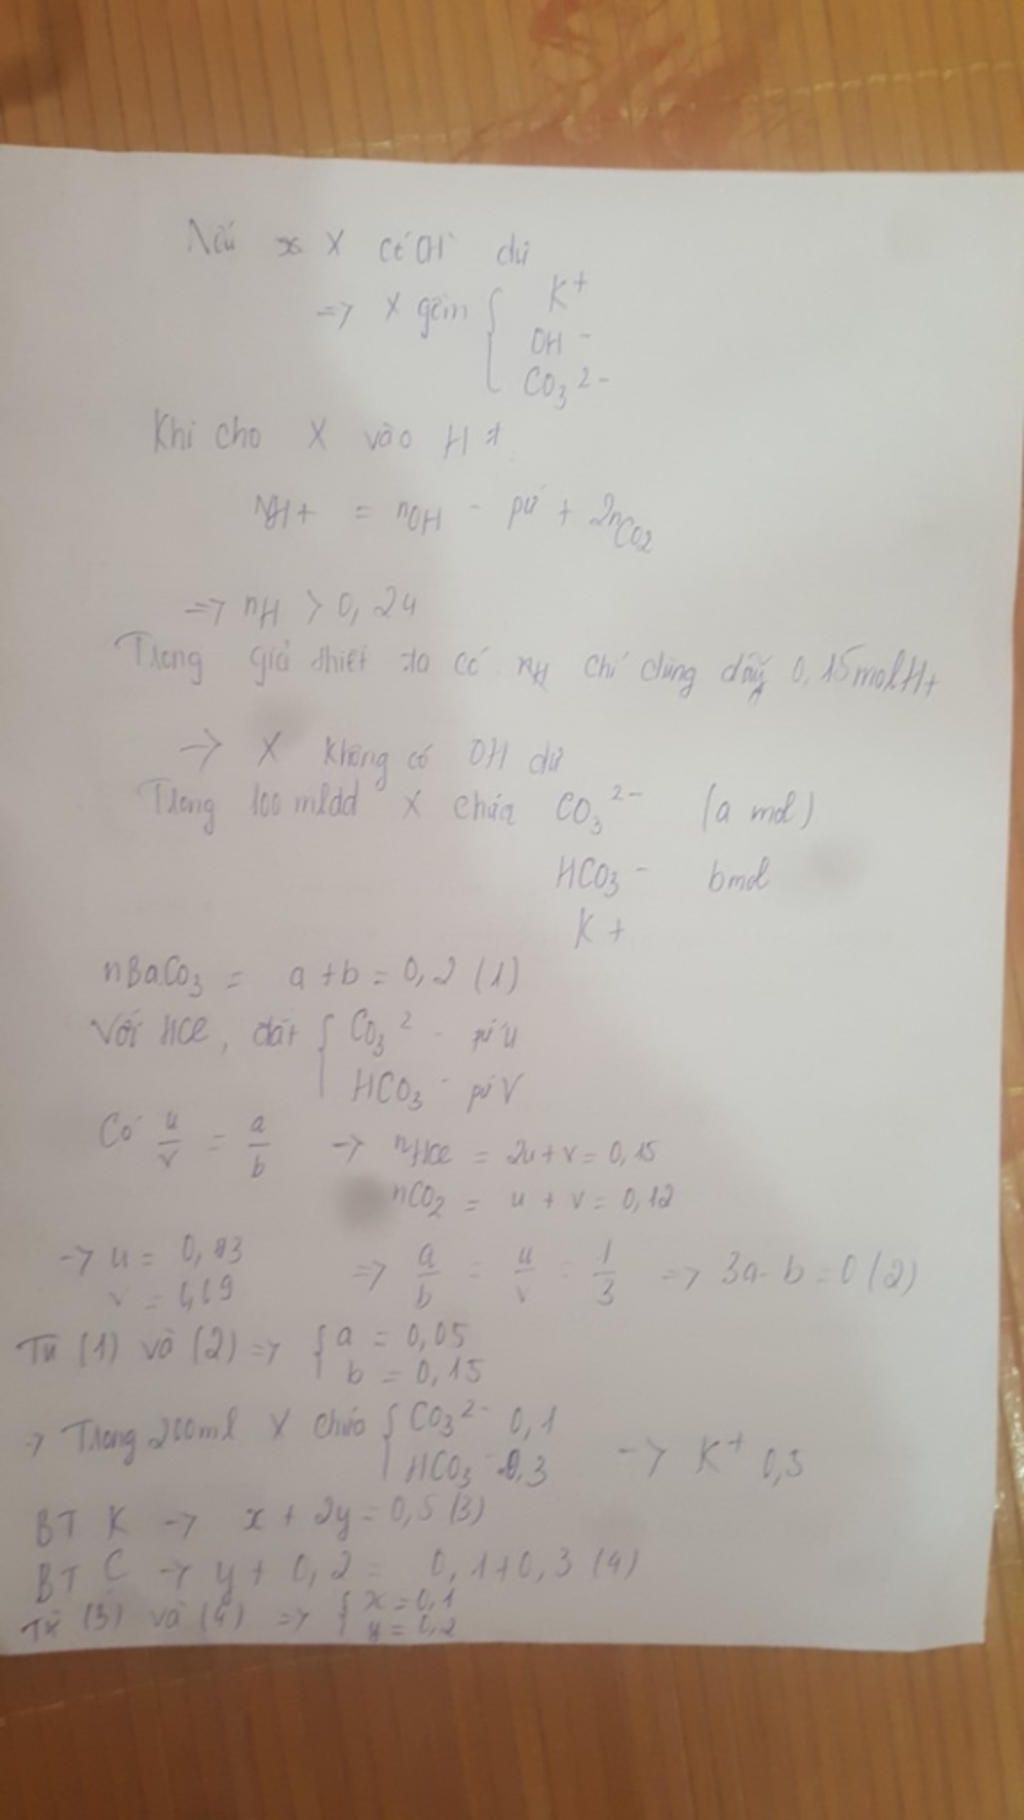 Nếu X có OH⁻ dư
=> X gồm { K+
OH -
CO3 2-
Khi cho X vào H+
nH+ = nOH - pứ + 2nCO2
=> nH > 0,24
Trong giả thiết ta có nH chỉ dùng 0,15 mol H+
-> X không có OH dư
Trong 100 ml dd X chứa CO3 2- (a mol)
HCO3 - b mol
K+
nBaCO3 = a + b = 0,2 (1)
Với HCl, đặt { CO3 2 - pứ u
HCO3 - pứ v
Có u/v = a/b -> nHCl = 2u + v = 0,15
nCO2 = u + v = 0,12
-> u = 0,03 => a/b = u/v = 1/3 => 3a - b = 0 (2)
v =
Từ (1) và (2) => { a = 0,05
b = 0,15
-> Trong 200 ml X chứa { CO3 2- 0,1
HCO3 - 0,3 -> K+ 0,5
BT K -> x + 2y = 0,5 (3)
BT C -> y + 0,2 = 0,1 + 0,3 (4)
Từ (3) và (4) => { x = 0,1
y = 0,2